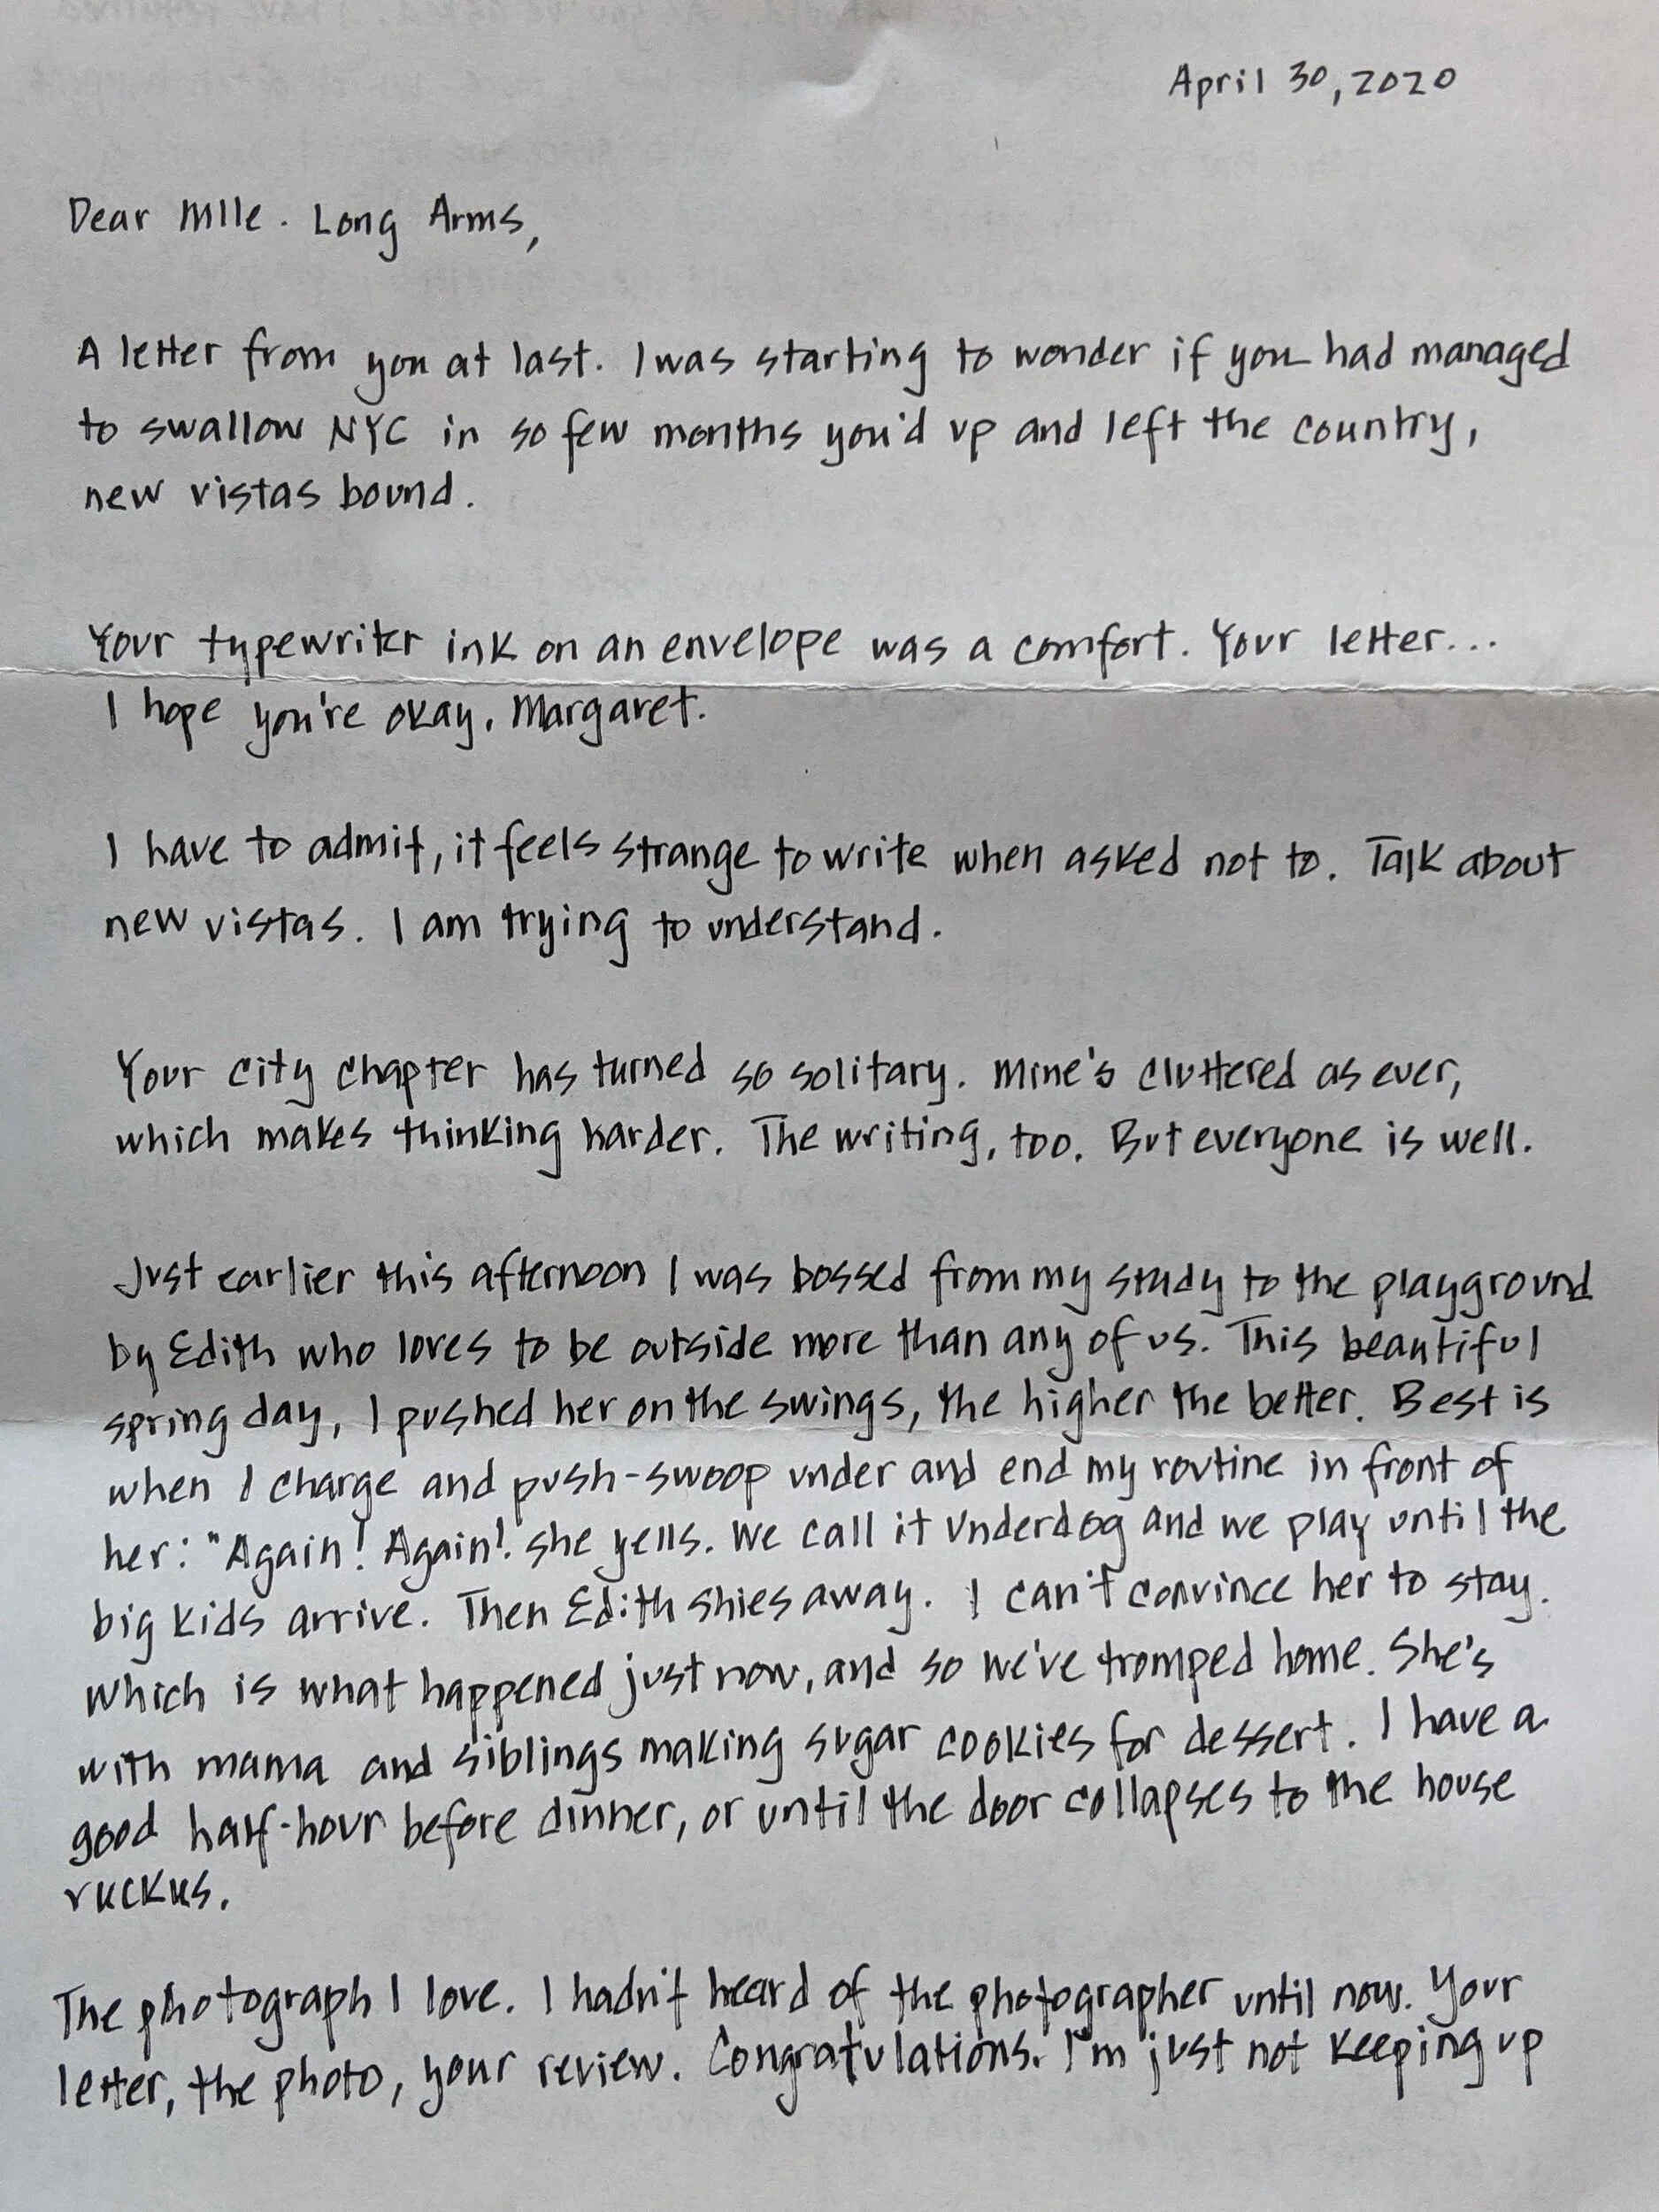 April 30, 2020
Dear Mlle. Long Arms,
A letter from you at last. I was starting to wonder if you had managed
to swallow NYC in so few months you'd up and left the country,
new vistas bound.
Your typewriter ink on an envelope was a comfort. Your letter...
I hope you're okay, Margaret.
I have to admit, it feels strange to write when asked not to. Talk about
new vistas. I am trying to understand.
Your city chapter has turned so solitary. Mine's cluttered as ever,
which makes thinking harder. The writing, too. But everyone is well.
Just earlier this afternoon I was bossed from my study to the playground
by Edith who loves to be outside more than any of us. This beautiful
spring day, I pushed her on the swings, the higher the better. Best is
when I charge and push-swoop under and end my routine in front of
her: "Again! Again! she yells. We call it Underdog and we play until the
big kids arrive. Then Edith shies away. I can't convince her to stay.
Which is what happened just now, and so we've tromped home. She's
with mama and siblings making sugar cookies for dessert. I have a
good half-hour before dinner, or until the door collapses to the house
ruckus.
The photograph I love. I hadn't heard of the photographer until now. Your
letter, the photo, your review. Congratulations. I'm just not keeping up